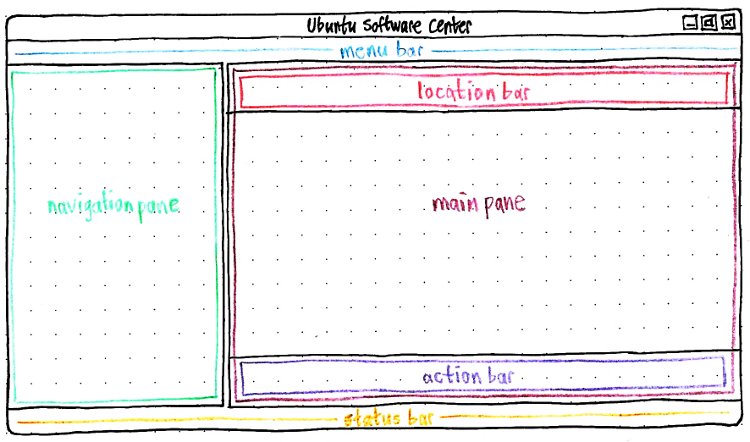 Ubuntu Software Center
menu bar
location bar
navigation pane
main pane
action bar
status bar